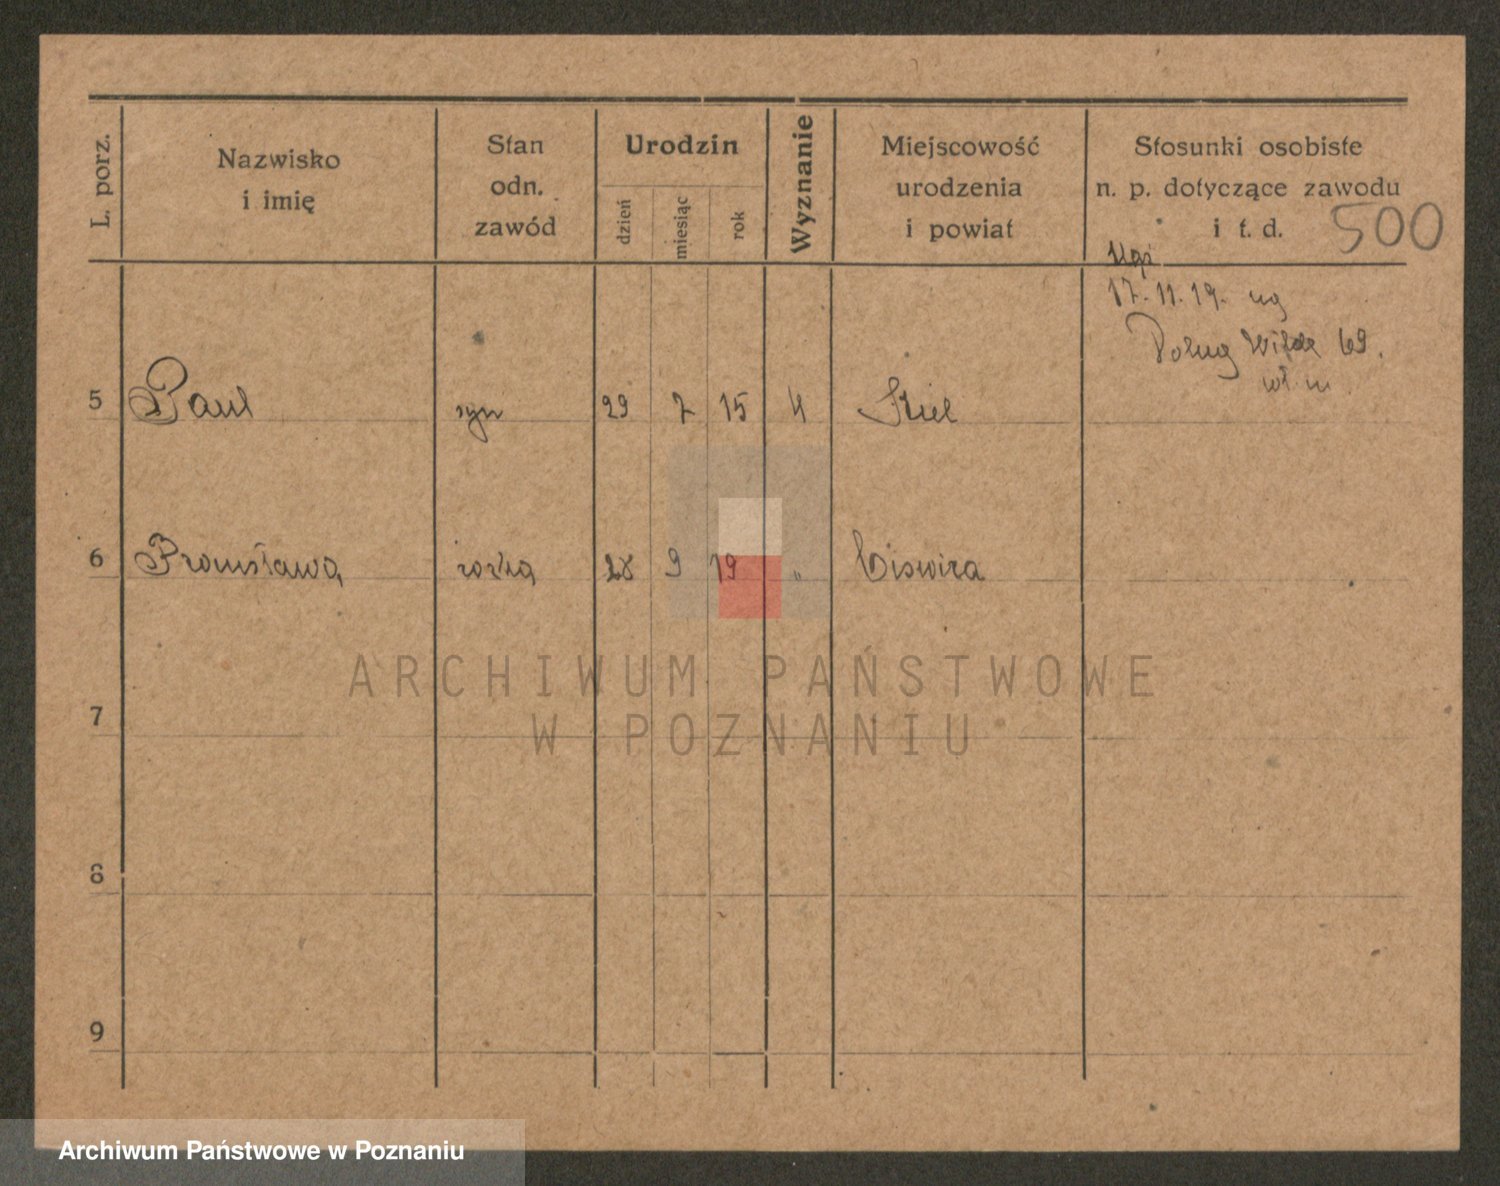 L. porz.
Nazwisko
i imię
Stan
odn.
zawód
Urodzin
dzień
miesiąc
rok
Wyznanie
Miejscowość
urodzenia
i powiat
Stosunki osobiste
n. p. dotyczące zawodu
i t. d.
500
17. 11. 19. na
Wilda 69.
5 Paul syn 29 7 15 Kiel
6 Bronisława 28 9 19 "
7
8
9
ARCHIWUM PAŃSTWOWE
W POZNANIU
Archiwum Państwowe w Poznaniu